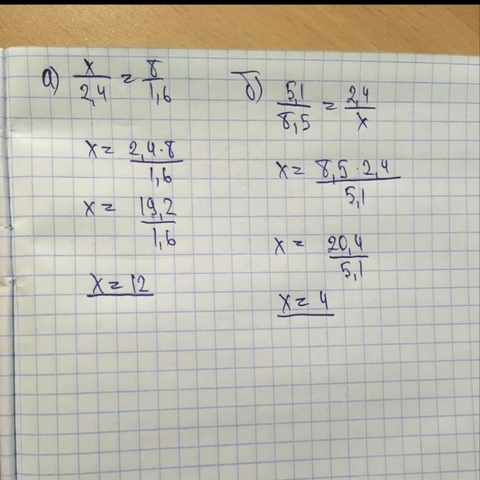 а) x/2,4 = 8/1,6
x = 2,4·8/1,6
x = 19,2/1,6
x = 12
б) 5,1/8,5 = 2,4/x
x = 8,5·2,4/5,1
x = 20,4/5,1
x = 4